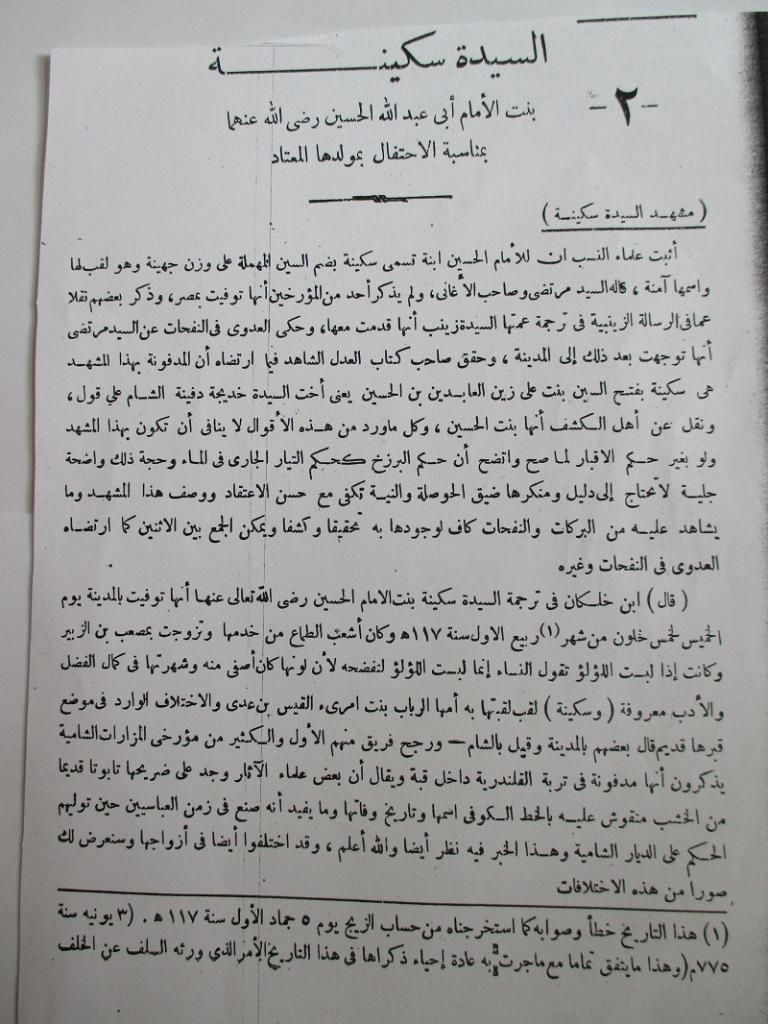 السيدة سكينـــــــــة
- ٢ -
بنت الأمام أبى عبد الله الحسين رضى الله عنهما
بمناسبة الاحتفال بمولدها المعتاد
( مشهـد السيدة سكينـة )
أثبت علماء النسب ان للأمام الحسين ابنة تسمى سكينة بضم السين المهملة على وزن جهينة وهو لقب لها
واسمها آمنة ، قاله السيد مرتضى وصاحب الأغانى، ولم يذكر أحد من المؤرخين أنها توفيت بمصر، وذكر بعضهم نقلا
عما فى الرسالة الزينبية فى ترجمة عمتها السيدة زينب أنها قدمت معها، وحكى العدوى فى النفحات عن السيد مرتضى
أنها توجهت بعد ذلك إلى المدينة ، وحقق صاحب كتاب العدل الشاهد فيما ارتضاه أن المدفونة بهذا المشهـد
هى سكينة بفتح السين بنت على زين العابدين بن الحسين يعنى أخت السيدة خديجة دفينة الشـام علي قول ،
ونقل عن أهل الكشف أنها بنت الحسين ، وكل ماورد من هـذه الأقوال لا ينافى أن تكون بهذا المشهد
ولو بغير حكم الاقبار لما صح واتضح أن حكم البرزخ كحكم التيار الجارى فى الماء وحجة ذلك واضحة
جلية لا تحتاج إلى دليل ومنكرها ضيق الحوصلة والنية تكفى مع حسن الاعتقاد ووصف هذا المشهـد وما
يشاهد عليه من البركات والنفحات كاف لوجودها به تحقيقا وكشفا ويمكن الجمع بين الاثنين كما ارتضـاه
العدوى فى النفحات وغيره
( قال ) ابن خلـكان فى ترجمة السيدة سكينة بنت الامام الحسين رضى الله تعالى عنهـا أنها توفيت بالمدينة يوم
الخميس لخمس خلون من شهر (١) ربيع الاول سنة ١١٧ هـ وكان أشعب الطماع من خدمها وتزوجت بمصعب بن الزبير
وكانت إذا لبست اللؤلؤ تقول النساء إنما لبست اللؤلؤ لتفضحه لأن لونها كان أصفى منه وشهرتها فى كمال الفضل
والأدب معروفة ( وسكينة ) لقب لقبتها به أمها الرباب بنت امرىء القيس بن عدى والاختلاف الوارد فى موضع
قبرها قديم قال بعضهم بالمدينة وقيل بالشام — ورجح فريق منهم الأول والكثير من مؤرخى المزارات الشامية
يذكرون أنها مدفونة فى تربة القلندرية داخل قبة ويقال أن بعض علماء الآثار وجد على ضريحها تابوتا قديما
من الخشب منقوش عليـه بالخط الكوفى اسمها وتاريخ وفاتها وما يفيد أنه صنع فى زمن العباسيين حين توليهم
الحكم على الديار الشامية وهـذا الخبر فيه نظر أيضا والله أعلم ، وقد اختلفوا أيضا فى أزواجها وسنعرض لك
صورا من هذه الاختلافات
(١) هذا التاريخ خطأ وصوابه كما استخرجناه من حساب الزيج يوم ٥ جماد الأول سنة ١١٧ هـ . (٣ يونيه سنة
٧٧٥م) وهذا مايتفق تماما مع ماجرت به عادة إحياء ذكراها فى هذا التاريخ الأمر الذي ورثه السلف عن الخلف